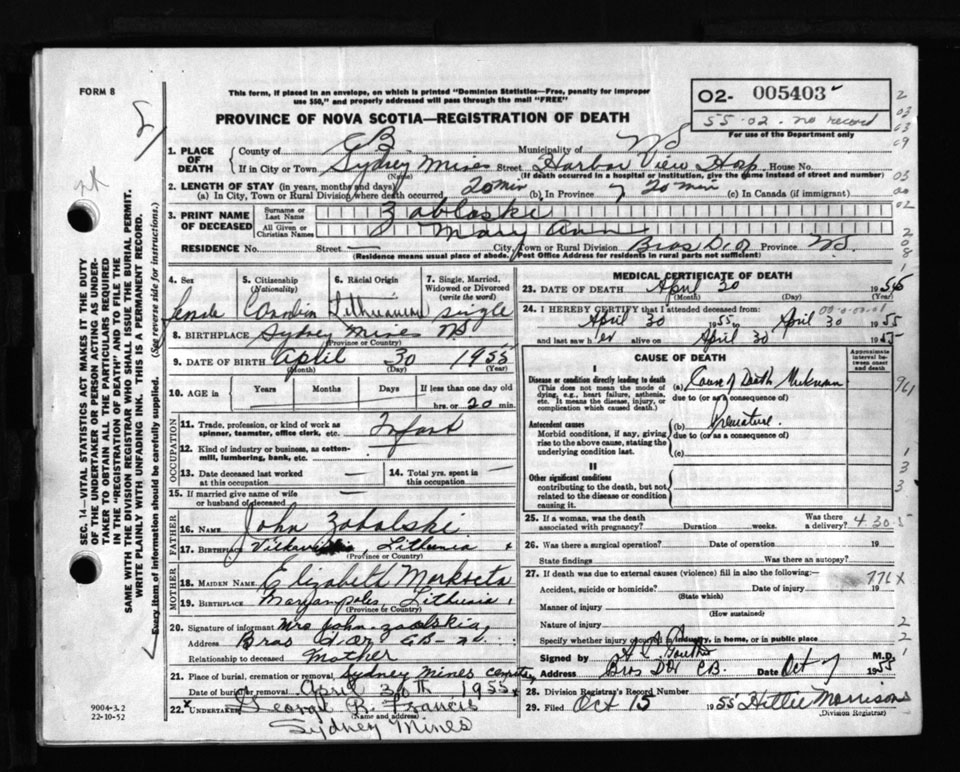 FORM 8
This form, if placed in an envelope, on which is printed "Dominion Statistics—Free, penalty for improper
use $50," and properly addressed will pass through the mail "FREE"
PROVINCE OF NOVA SCOTIA—REGISTRATION OF DEATH
O2- 005403
55-02. no record
For use of the Department only
SEC. 14—VITAL STATISTICS ACT MAKES IT THE DUTY
OF THE UNDERTAKER OR PERSON ACTING AS UNDER-
TAKER TO OBTAIN ALL THE PARTICULARS REQUIRED
IN THE "REGISTRATION OF DEATH" AND TO FILE THE
SAME WITH THE DIVISION REGISTRAR WHO SHALL ISSUE THE BURIAL PERMIT.
WRITE PLAINLY WITH UNFADING INK. THIS IS A PERMANENT RECORD.
Every item of information should be carefully supplied. (See reverse side for instructions.)
1. PLACE OF DEATH
County of CB Municipality of NS
If in City or Town Sydney Mines Street Harbor View Hosp. House No.
(Name) (If death occurred in a hospital or institution, give the name instead of street and number)
2. LENGTH OF STAY (in years, months and days)
(a) In City, Town or Rural Division where death occurred 20 min (b) In Province 20 min (c) In Canada (if immigrant)
3. PRINT NAME OF DECEASED
Surname or Last Name Zablaski
All Given or Christian Names Mary Ann
RESIDENCE No. Street — City, Town or Rural Division Bras D'Or Province NS.
(Residence means usual place of abode. Post Office Address for residents in rural parts not sufficient)
4. Sex
5. Citizenship (Nationality)
6. Racial Origin
7. Single, Married, Widowed or Divorced (write the word)
Lithuanian single
8. BIRTHPLACE Sydney Mines NS
(Province or Country)
9. DATE OF BIRTH April 30 1955
(Month) (Day) (Year)
10. AGE in Years Months Days If less than one day old
hrs. or 20 min.
OCCUPATION
11. Trade, profession, or kind of work as spinner, teamster, office clerk, etc.
12. Kind of industry or business, as cotton-mill, lumbering, bank, etc. —
13. Date deceased last worked at this occupation —
14. Total yrs. spent in this occupation —
15. If married give name of wife or husband of deceased
FATHER
16. NAME John Zobolski
17. BIRTHPLACE Lithunia
(Province or Country)
MOTHER
18. MAIDEN NAME Elizabeth
19. BIRTHPLACE
(Province or Country)
20. Signature of informant Mrs John
Address Bras d'Or CB
Relationship to deceased Mother
21. Place of burial, cremation or removal Sydney Mines
Date of burial or removal April 30th 1955
22. UNDERTAKER George B. Francis
(Name and address)
Sydney Mines
9004-3.2
22-10-52
MEDICAL CERTIFICATE OF DEATH
23. DATE OF DEATH April 30 1955
(Month) (Day) (Year)
24. I HEREBY CERTIFY that I attended deceased from:
April 30 1955 to April 30 1955
and last saw her alive on April 30 1955
CAUSE OF DEATH
Approximate interval between onset and death
I
Disease or condition directly leading to death
(This does not mean the mode of dying, e.g., heart failure, asthenia, etc. It means the disease, injury, or complication which caused death.)
(a) Cause of Death Unknown
due to (or as a consequence of)
Antecedent causes
Morbid conditions, if any, giving rise to the above cause, stating the underlying condition last.
(b) Premature.
due to (or as a consequence of)
(c)
II
Other significant conditions
contributing to the death, but not related to the disease or condition causing it.
25. If a woman, was the death associated with pregnancy? Duration weeks. Was there a delivery?
26. Was there a surgical operation? Date of operation 19
State findings Was there an autopsy?
27. If death was due to external causes (violence) fill in also the following:—
Accident, suicide or homicide? Date of injury 19
(State which)
Manner of injury
(How sustained)
Nature of injury
Specify whether injury occurred in industry, in home, or in public place
Signed by M.D.
Address Bras D'Or CB. Oct 7 1955
28. Division Registrar's Record Number
29. Filed Oct 15 1955 Hittie Morrison
(Division Registrar)
776X